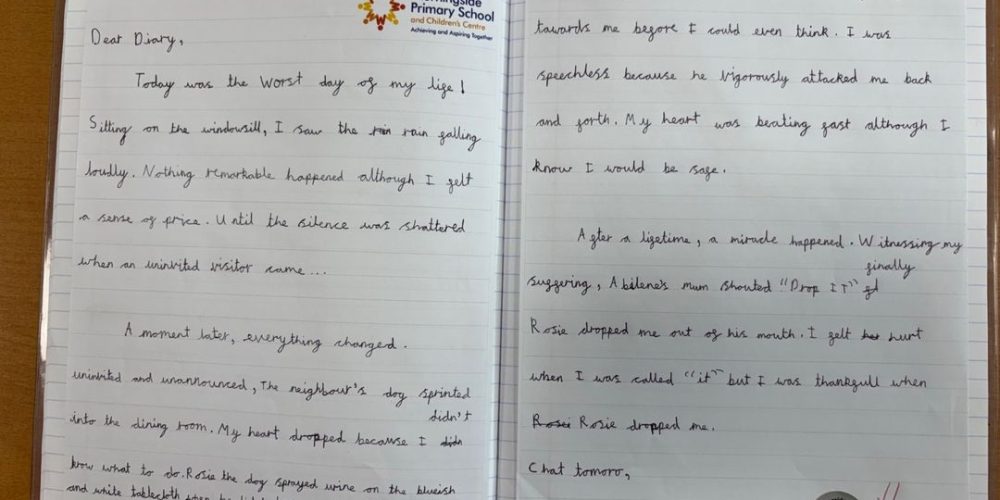 Morningside
Primary School
and Children's Centre
Achieving and Aspiring Together
Dear Diary,
Today was the worst day of my life!
Sitting on the windowsill, I saw the rain falling
loudly. Nothing remarkable happened although I felt
a sense of price. Until the silence was shattered
when an uninvited visitor came...
A moment later, everything changed.
uninvited and unannounced, The neighbour's dog sprinted
didn't
into the dining room. My heart dropped because I didn
know what to do. Rosie the dog sprayed urine on the blueish
and white tablecloth
towards me before I could even think. I was
speechless because he vigorously attacked me back
and forth. My heart was beating fast although I
know I would be safe.
After a lifetime, a miracle happened. Witnessing my
finally
suffering, Abilene's mum shouted "Drop IT"
Rosie dropped me out of his mouth. I felt hurt
when I was called "it" but I was thankfull when
Rosie dropped me.
Chat tomoro,